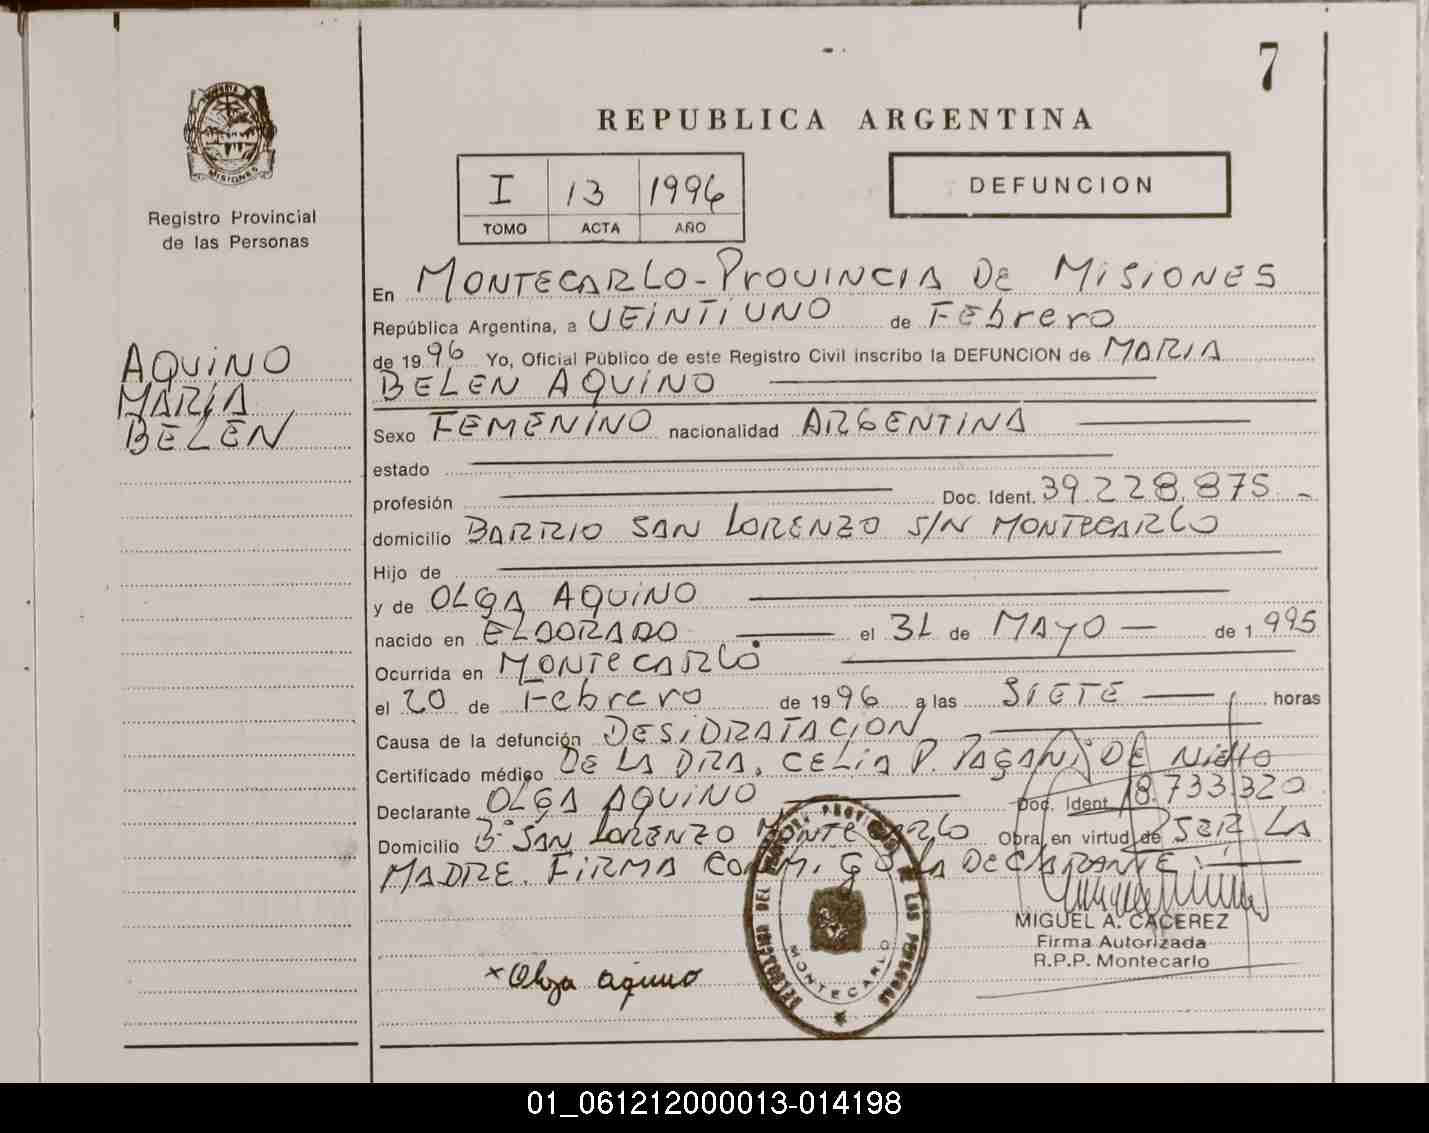 7
REPUBLICA ARGENTINA
MISIONES
Registro Provincial
de las Personas
I 13 1996
TOMO ACTA AÑO
DEFUNCION
AQUINO
MARIA
BELEN
En MONTECARLO - PROVINCIA DE MISIONES
República Argentina, a VEINTIUNO de Febrero
de 1996 Yo, Oficial Público de este Registro Civil inscribo la DEFUNCION de MARIA
BELEN AQUINO
Sexo FEMENINO nacionalidad ARGENTINA
estado
profesión Doc. Ident. 39.228.875
domicilio BARRIO SAN LORENZO S/N MONTECARLO
Hijo de
y de OLGA AQUINO
nacido en ELDORADO el 31 de MAYO de 1995
Ocurrida en MONTECARLO
el 20 de Febrero de 1996 a las SIETE horas
Causa de la defunción DESIDRATACION
Certificado médico DE LA DRA. CELIA P. PAGANI DE
Declarante OLGA AQUINO Doc. Ident. 18.733.320
Domicilio Bº SAN LORENZO MONTECARLO Obra en virtud de SER LA
MADRE. FIRMA CONMIGO LA DECLARANTE
MIGUEL A. CACEREZ
Firma Autorizada
R.P.P. Montecarlo
x Olga aquino
DELEGACION DEL REGISTRO PROVINCIAL DE LAS PERSONAS
MONTECARLO
01_061212000013-014198